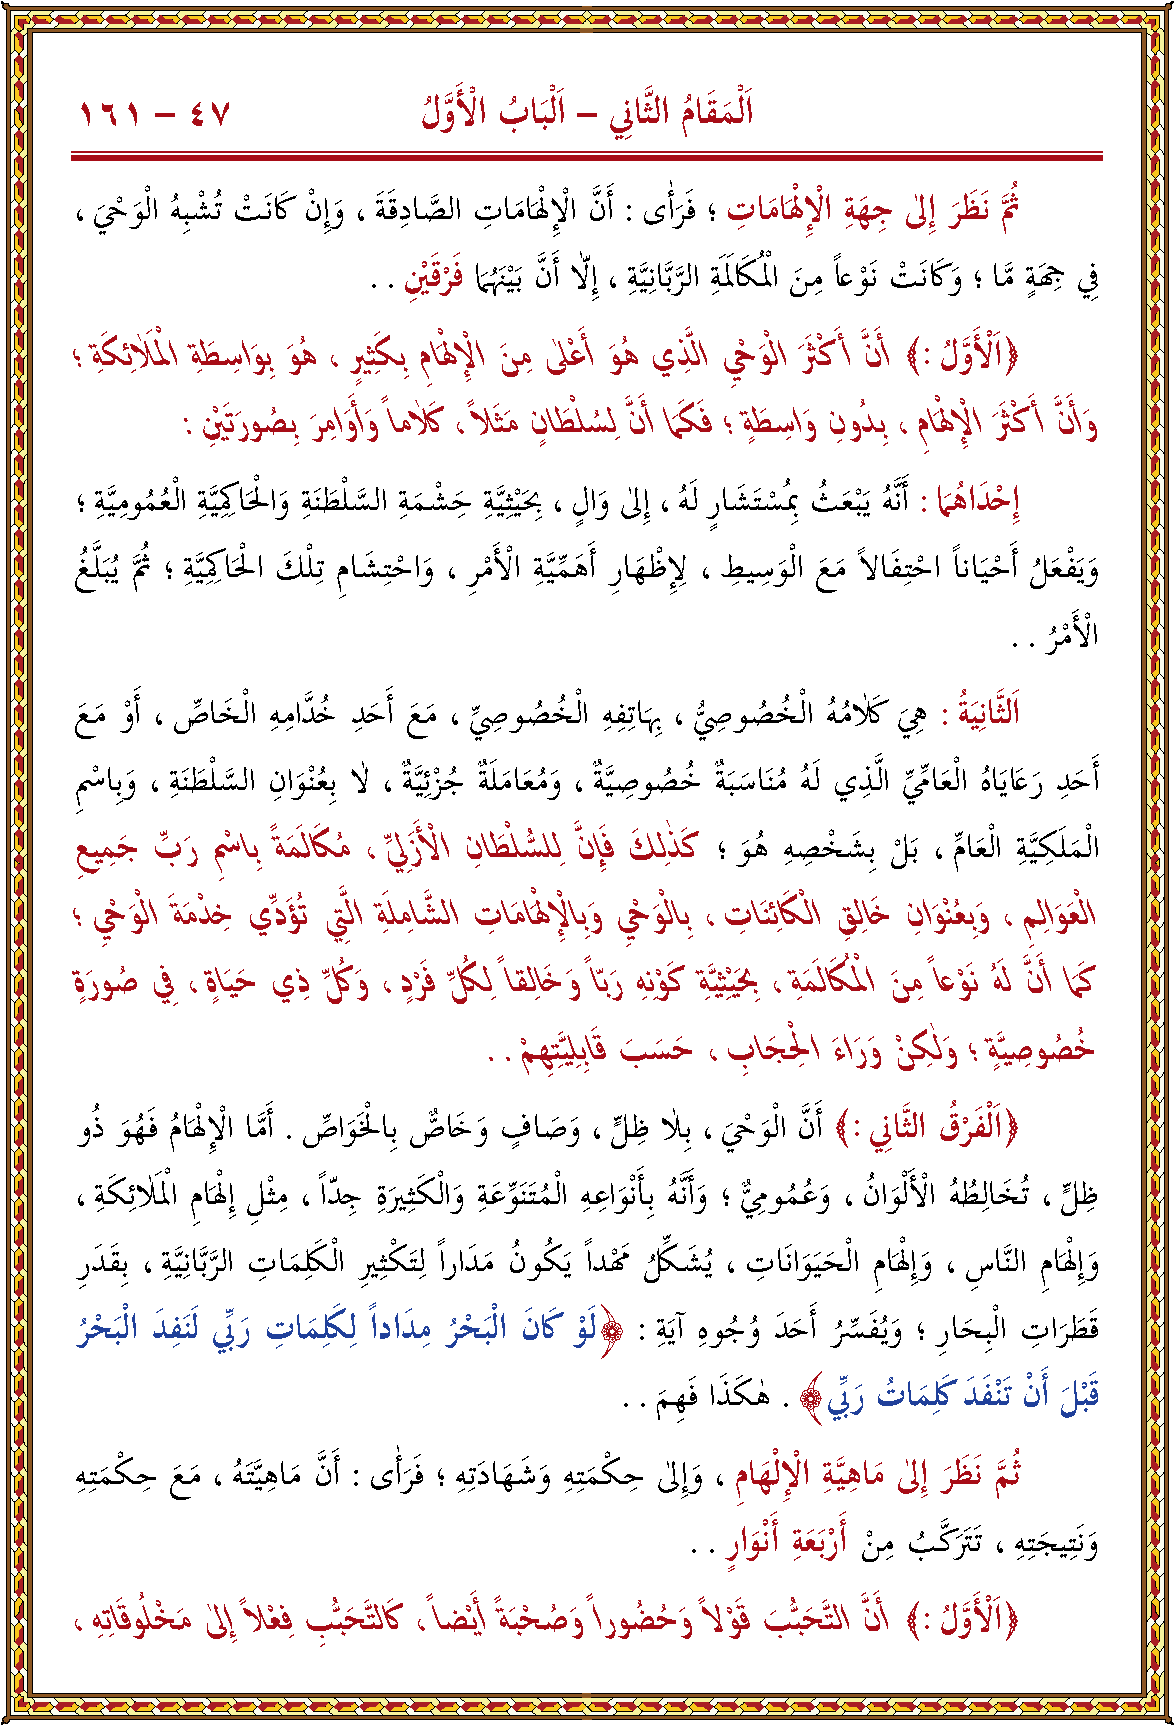 اَلْمَقَامُ الثَّانِي – اَلْبَابُ الْأَوَّلُ ٤٧ – ١٦١
ثُمَّ نَظَرَ إِلىٰ جِهَةِ الْإِلْهَامَاتِ ؛ فَرَأٰى : أَنَّ الْإِلْهَامَاتِ الصَّادِقَةَ ، وَإِنْ كَانَتْ تُشْبِهُ الْوَحْيَ ،
فِي جِهَةٍ مَّا ؛ وَكَانَتْ نَوْعاً مِنَ الْمُكَالَمَةِ الرَّبَّانِيَّةِ ، إِلاّٰ أَنَّ بَيْنَهُمَا فَرْقَيْنِ . .
﴿اَلْأَوَّلُ :﴾ أَنَّ أَكْثَرَ الْوَحْيِ الَّذِي هُوَ أَعْلٰى مِنَ الْإِلْهَامِ بِكَثِيرٍ ، هُوَ بِوَاسِطَةِ الْمَلَائِكَةِ ؛
وَأَنَّ أَكْثَرَ الْإِلْهَامِ ، بِدُونِ وَاسِطَةٍ ؛ فَكَمَا أَنَّ لِسُلْطَانٍ مَثَلاً ، كَلَاماً وَأَوَامِرَ بِصُورَتَيْنِ :
إِحْدَاهُمَا : أَنَّهُ يَبْعَثُ بِمُسْتَشَارٍ لَهُ ، إِلىٰ وَالٍ ، بِحَيْثِيَّةِ حِشْمَةِ السَّلْطَنَةِ وَالْحَاكِمِيَّةِ الْعُمُومِيَّةِ ؛
وَيَفْعَلُ أَحْيَاناً احْتِفَالاً مَعَ الْوَسِيطِ ، لِإِظْهَارِ أَهَمِّيَّةِ الْأَمْرِ ، وَاحْتِشَامِ تِلْكَ الْحَاكِمِيَّةِ ؛ ثُمَّ يُبَلَّغُ
الْأَمْرُ . .
اَلثَّانِيَةُ : هِيَ كَلَامُهُ الْخُصُوصِيُّ ، بِهَاتِفِهِ الْخُصُوصِيِّ ، مَعَ أَحَدِ خُدَّامِهِ الْخَاصِّ ، أَوْ مَعَ
أَحَدِ رَعَايَاهُ الْعَامِّيِّ الَّذِي لَهُ مُنَاسَبَةٌ خُصُوصِيَّةٌ ، وَمُعَامَلَةٌ جُزْئِيَّةٌ ، لَا بِعُنْوَانِ السَّلْطَنَةِ ، وَبِاسْمِ
الْمَلَكِيَّةِ الْعَامِّ ، بَلْ بِشَخْصِهِ هُوَ ؛ كَذٰلِكَ فَإِنَّ لِلسُّلْطَانِ الْأَزَلِيِّ ، مُكَالَمَةً بِاسْمِ رَبِّ جَمِيعِ
الْعَوَالِمِ ، وَبِعُنْوَانِ خَالِقِ الْكَائِنَاتِ ، بِالْوَحْيِ وَبِالْإِلْهَامَاتِ الشَّامِلَةِ الَّتِي تُؤَدِّي خِدْمَةَ الْوَحْيِ ؛
كَمَا أَنَّ لَهُ نَوْعاً مِنَ الْمُكَالَمَةِ ، بِحَيْثِيَّةِ كَوْنِهِ رَبّاً وَخَالِقاً لِكُلِّ فَرْدٍ ، وَكُلِّ ذِي حَيَاةٍ ، فِي صُورَةٍ
خُصُوصِيَّةٍ ؛ وَلٰكِنْ وَرَاءَ الْحِجَابِ ، حَسَبَ قَابِلِيَّتِهِمْ . .
﴿اَلْفَرْقُ الثَّانِي :﴾ أَنَّ الْوَحْيَ ، بِلَا ظِلٍّ ، وَصَافٍ وَخَاصٌّ بِالْخَوَاصِّ . أَمَّا الْإِلْهَامُ فَهُوَ ذُو
ظِلٍّ ، تُخَالِطُهُ الْأَلْوَانُ ، وَعُمُومِيٌّ ؛ وَأَنَّهُ بِأَنْوَاعِهِ الْمُتَنَوِّعَةِ وَالْكَثِيرَةِ جِدّاً ، مِثْلِ إِلْهَامِ الْمَلَائِكَةِ ،
وَإِلْهَامِ النَّاسِ ، وَإِلْهَامِ الْحَيَوَانَاتِ ، يُشَكِّلُ مَهْداً يَكُونُ مَدَاراً لِتَكْثِيرِ الْكَلِمَاتِ الرَّبَّانِيَّةِ ، بِقَدَرِ
قَطَرَاتِ الْبِحَارِ ؛ وَيُفَسِّرُ أَحَدَ وُجُوهِ آيَةِ : ﴿لَوْ كَانَ الْبَحْرُ مِدَاداً لِكَلِمَاتِ رَبِّي لَنَفِدَ الْبَحْرُ
قَبْلَ أَنْ تَنْفَدَ كَلِمَاتُ رَبِّي﴾ . هٰكَذَا فَهِمَ . .
ثُمَّ نَظَرَ إِلىٰ مَاهِيَّةِ الْإِلْهَامِ ، وَإِلىٰ حِكْمَتِهِ وَشَهَادَتِهِ ؛ فَرَأٰى : أَنَّ مَاهِيَّتَهُ ، مَعَ حِكْمَتِهِ
وَنَتِيجَتِهِ ، تَتَرَكَّبُ مِنْ أَرْبَعَةِ أَنْوَارٍ . .
﴿اَلْأَوَّلُ :﴾ أَنَّ التَّحَبُّبَ قَوْلاً وَحُضُوراً وَصُحْبَةً أَيْضاً ، كَالتَّحَبُّبِ فِعْلاً إِلىٰ مَخْلُوقَاتِهِ ،